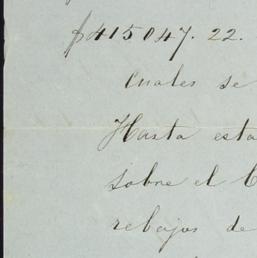 $415047.22.
cuales se
Hasta esta
sobre el
rebajos de